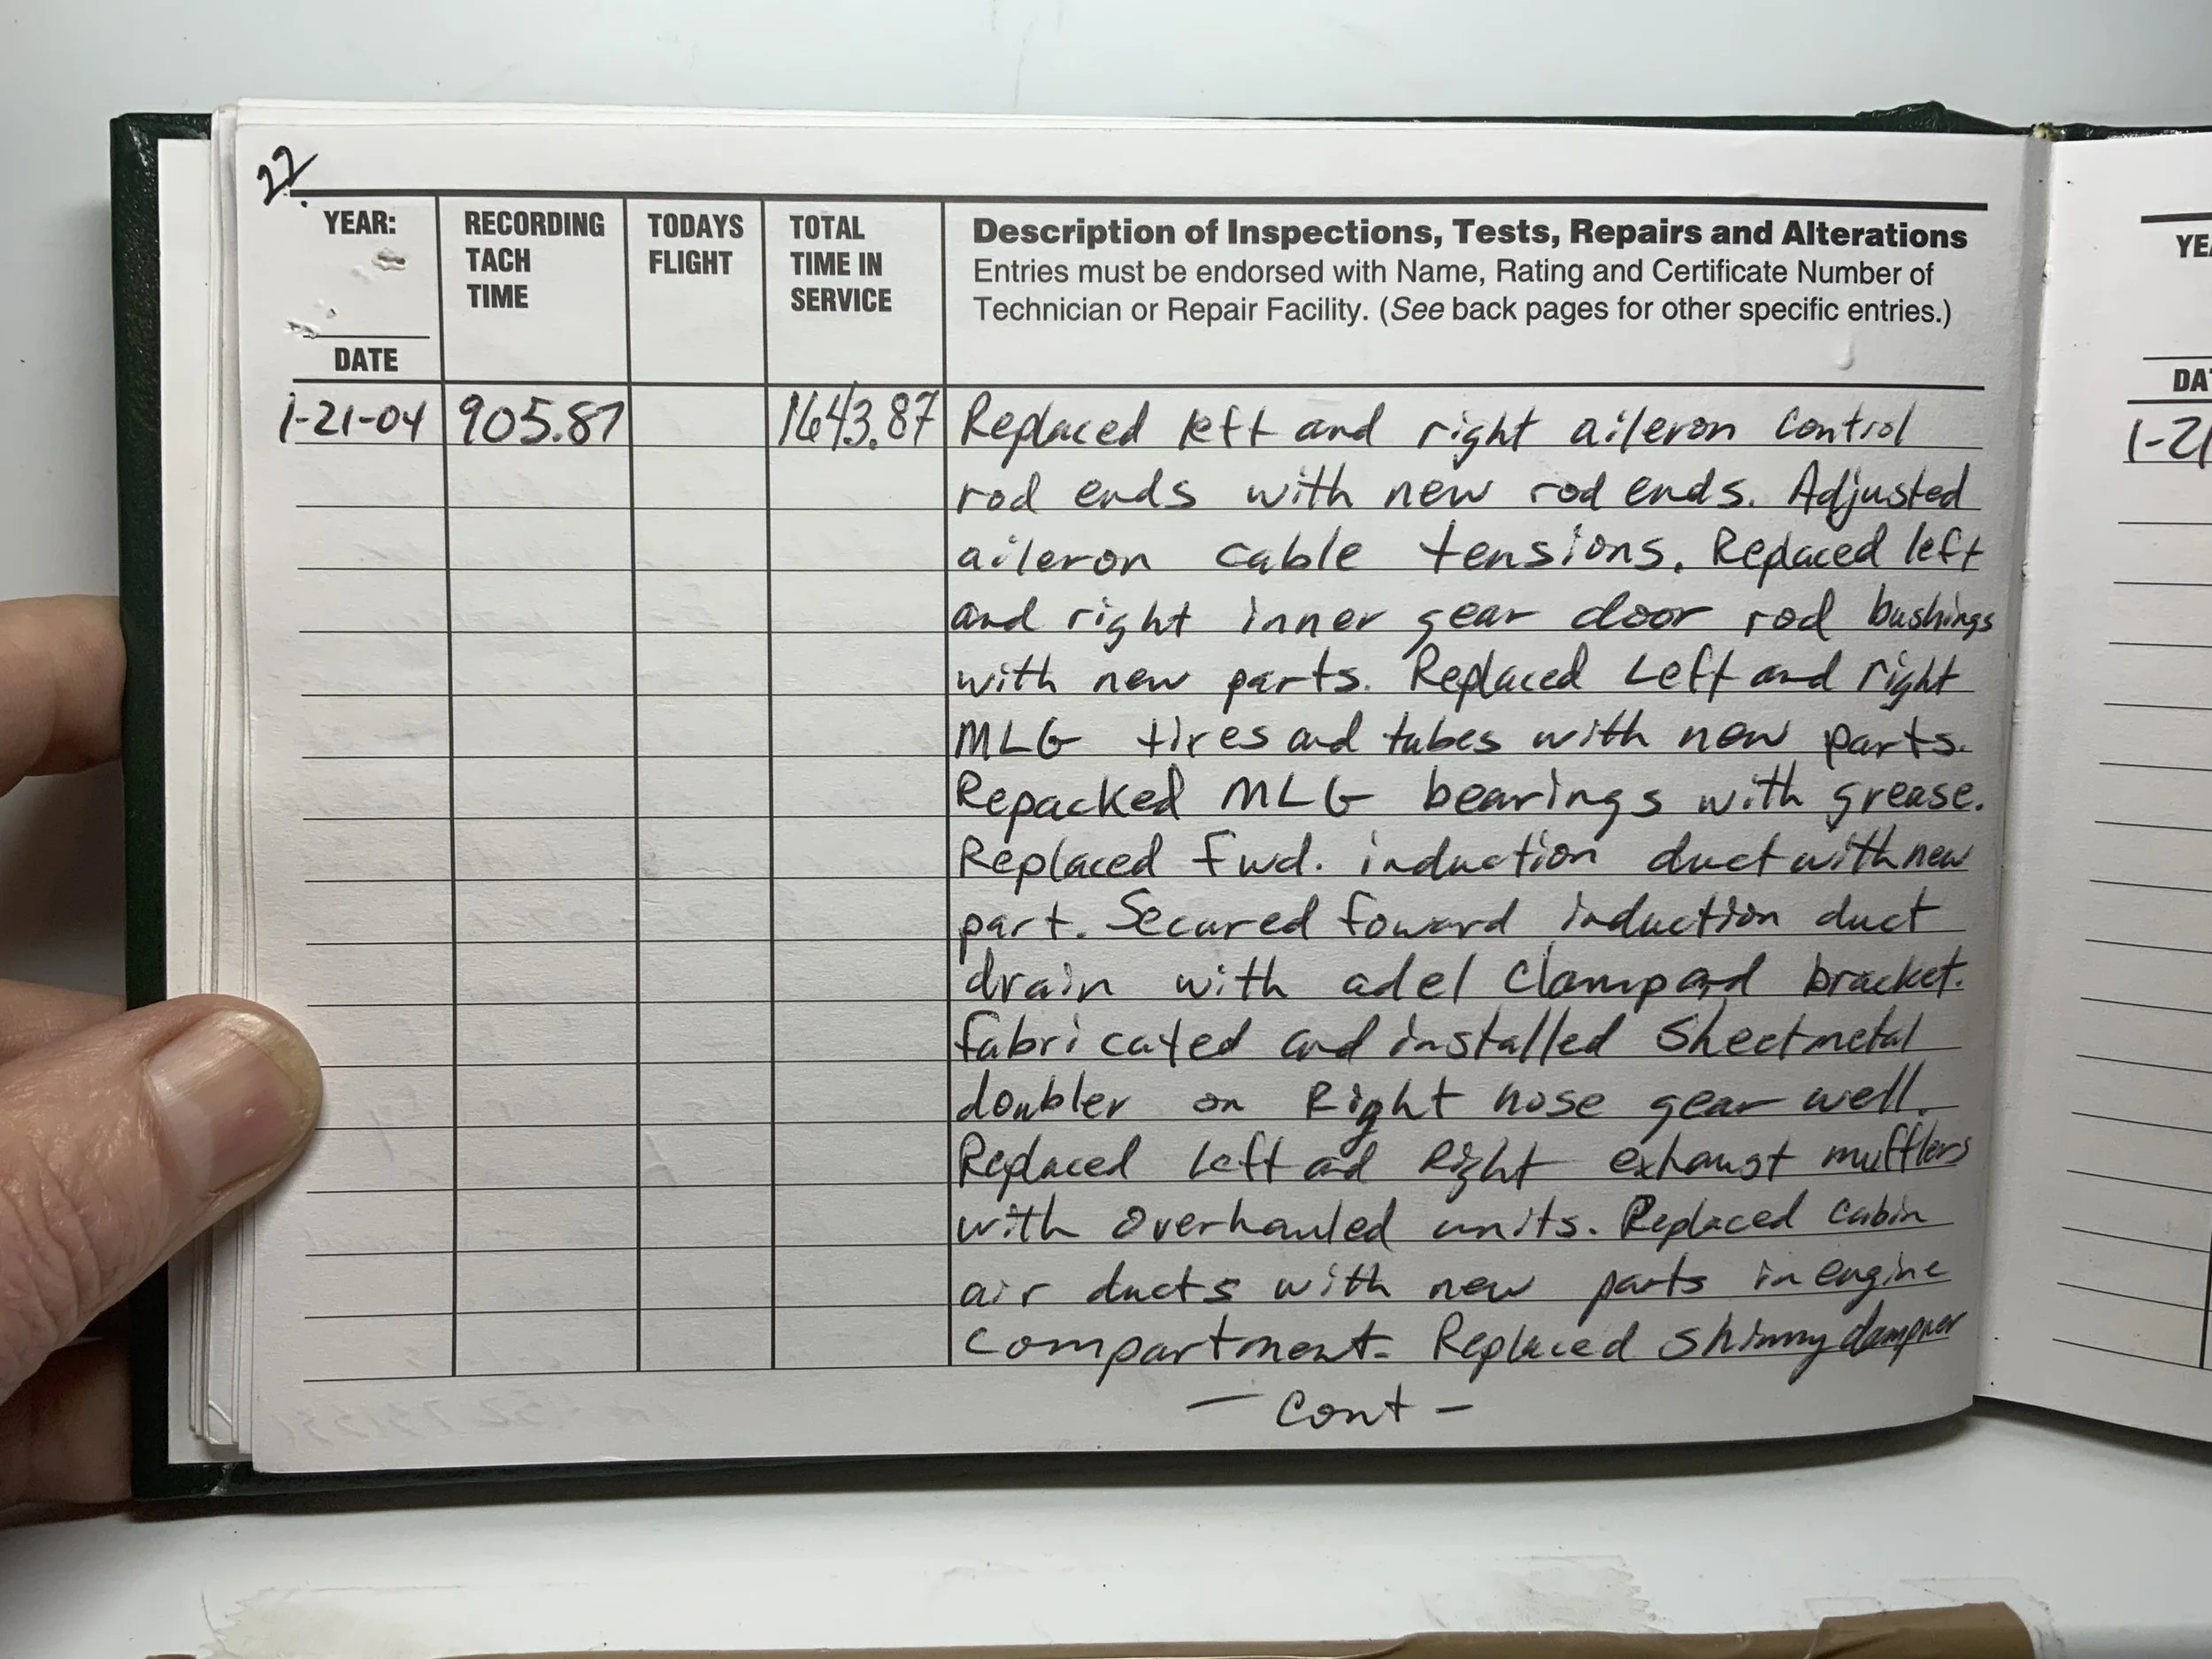 22
YEAR:
DATE
RECORDING
TACH
TIME
TODAYS
FLIGHT
TOTAL
TIME IN
SERVICE
Description of Inspections, Tests, Repairs and Alterations
Entries must be endorsed with Name, Rating and Certificate Number of
Technician or Repair Facility. (See back pages for other specific entries.)
1-21-04 905.87 1643.87 Replaced left and right aileron control
rod ends with new rod ends. Adjusted
aileron cable tensions. Replaced left
and right inner gear door rod bushings
with new parts. Replaced Left and right
MLG tires and tubes with new parts.
Repacked MLG bearings with grease.
Replaced fwd. induction duct with new
part. Secured foward induction duct
drain with adel clamp and bracket.
fabricated and installed Sheetmetal
doubler on Right nose gear well.
Replaced Left and Right exhaust mufflers
with overhauled units. Replaced cabin
air ducts with new parts in engine
compartment. Replaced shimmy dampner
- cont -
YE
DA
1-21